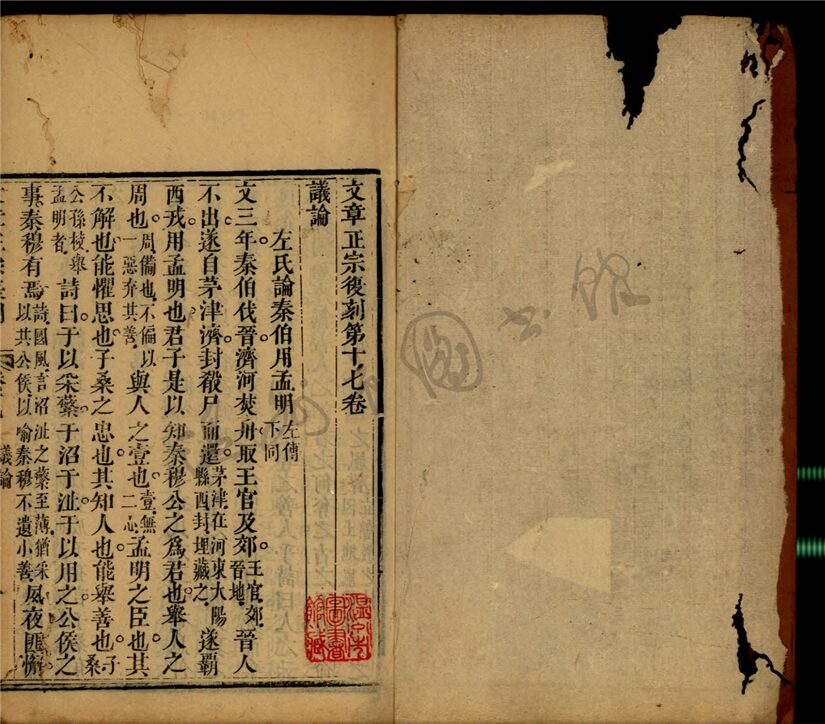 文章正宗復刻第十七卷
議論
左氏論秦伯用孟明左傳下同
文三年秦伯伐晉濟河焚舟取王官及郊王官郊晉地晉人
不出遂自茅津濟封殽尸而還茅津在河東大陽縣西封埋藏之遂霸
西戎用孟明也君子是以知秦穆公之爲君也舉人之
周也周備也不偏以一惡弃其善與人之壹也壹無二心孟明之臣也其
不解也能懼思也子桑之忠也其知人也能舉善也子桑
公孫枝舉孟明者詩曰于以采蘩于沼于沚于以用之公侯之
事秦穆有焉詩國風言沼沚之蘩至薄猶采以共公侯以喻秦穆不遺小善夙夜匪懈
議論
温州市圖書館藏
图书馆